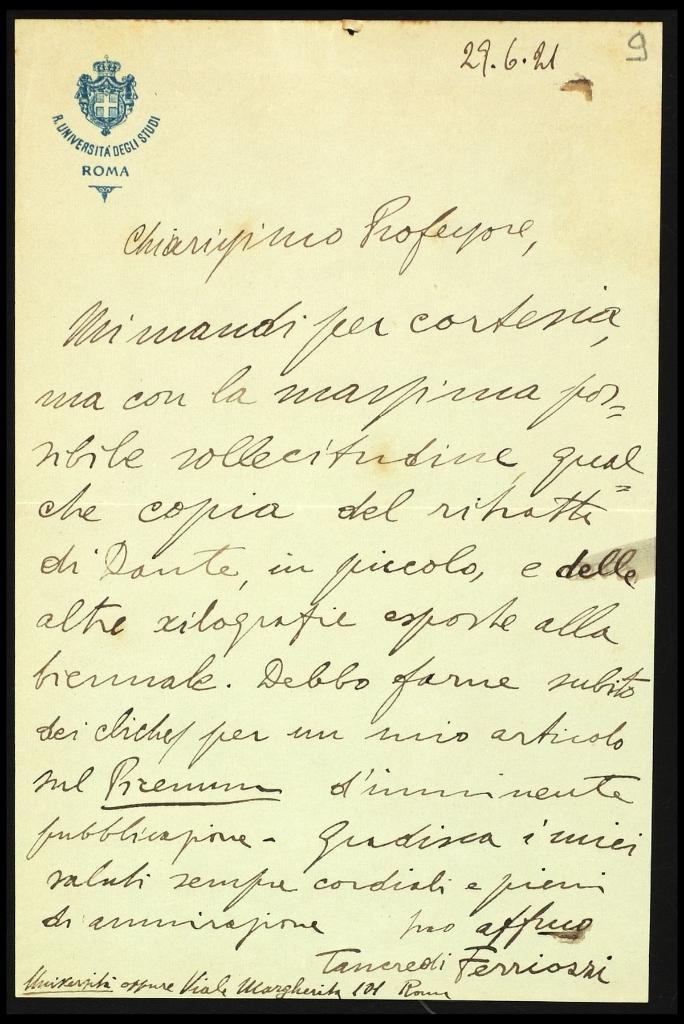 29.6.21
9
R. UNIVERSITÀ DEGLI STUDI
ROMA
Chiarissimo Professore,
Mi mandi per cortesia,
ma con la massima pos=
sibile sollecitudine, qual=
che copia del ritratto
di Dante, in piccolo, e delle
altre xilografie esposte alla
biennale. Debbo farne subito
dei clichés per un mio articolo
sul Picenum d'imminente
pubblicazione - Gradisca i miei
saluti sempre cordiali e pieni
di ammirazione suo affmo
Tancredi
Università oppure Viale Margherita 101 Roma